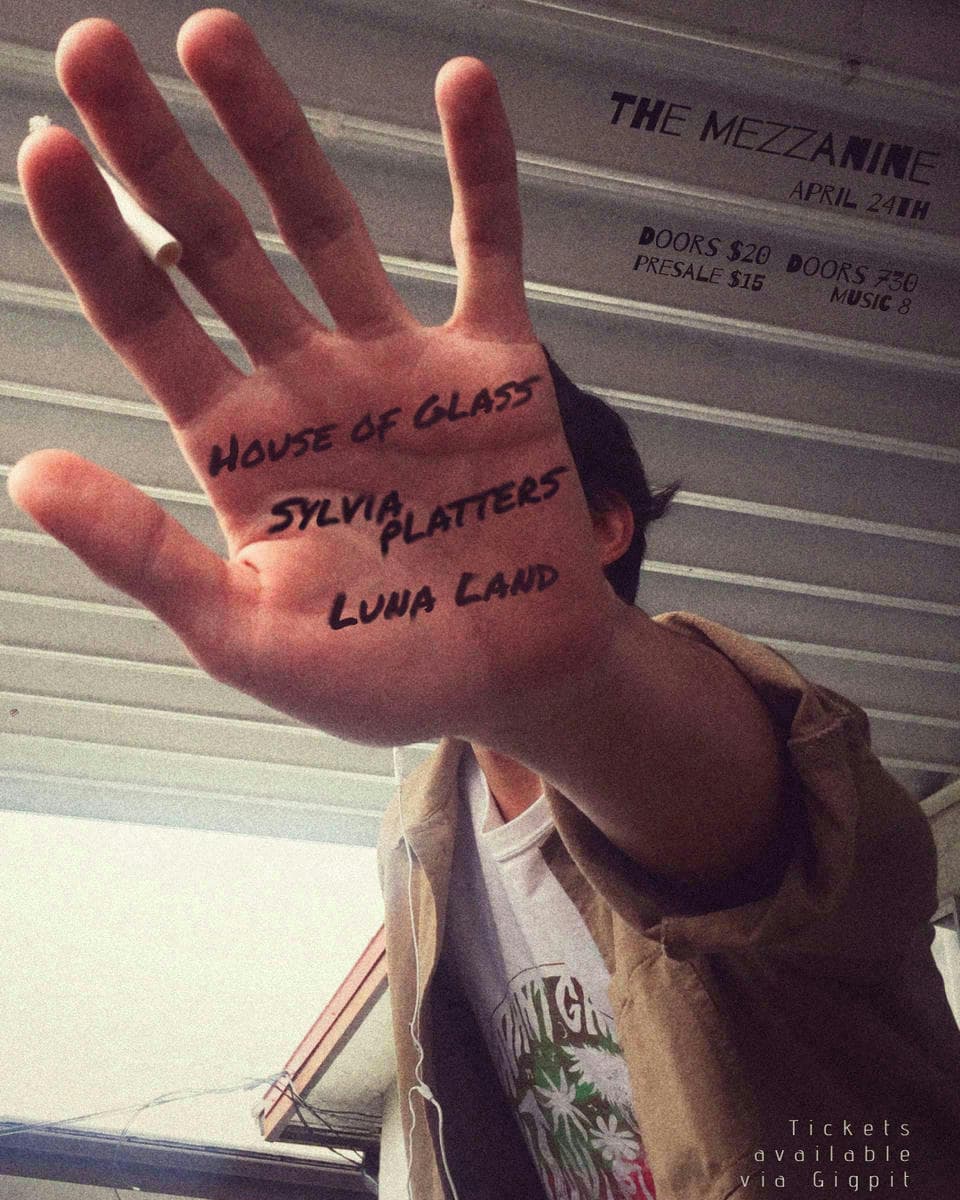 THE MEZZANINE
APRIL 24TH
DOORS $20
PRESALE $15
DOORS 730
MUSIC 8
HOUSE OF GLASS
SYLVIA
PLATTERS
LUNA LAND
Tickets
available
via Gigpit